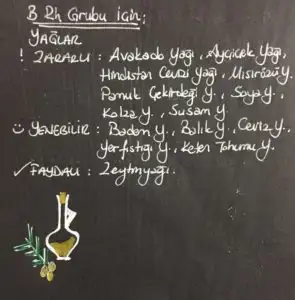 B Rh Grubu için;
YAĞLAR
! ZARARLI : Avakado Yağı, Ayçiçek Yağı,
Hindistan Cevizi Yağı, Mısırözü Y.
Pamuk Çekirdeği Y., Soya Y.,
Kolza Y., Susam Y.
YENEBİLİR : Badem Y., Balık Y., Ceviz Y.
Yerfıstığı Y., Keten Tohumu Y.
✓ FAYDALI : Zeytinyağı.